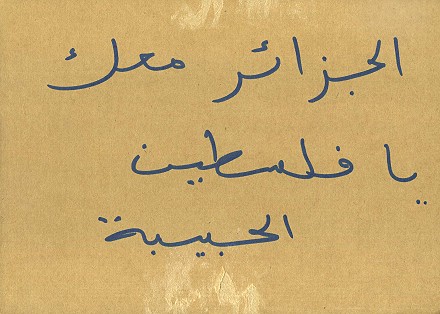 الجزائر معك
يا فلسطين
الحبيبة